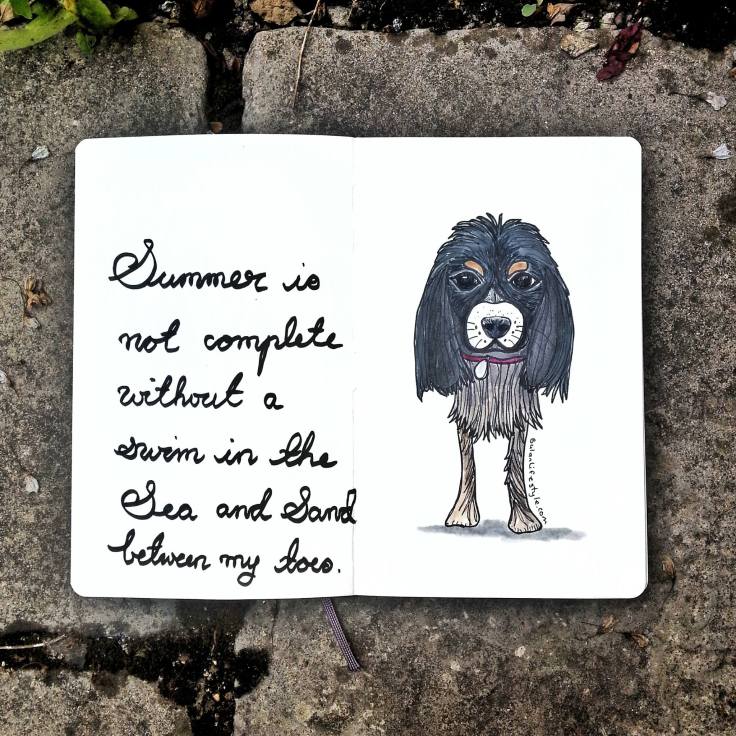 Summer is
not complete
without a
swim in the
Sea and Sand
between my toes.
Bulanlifestyle.com